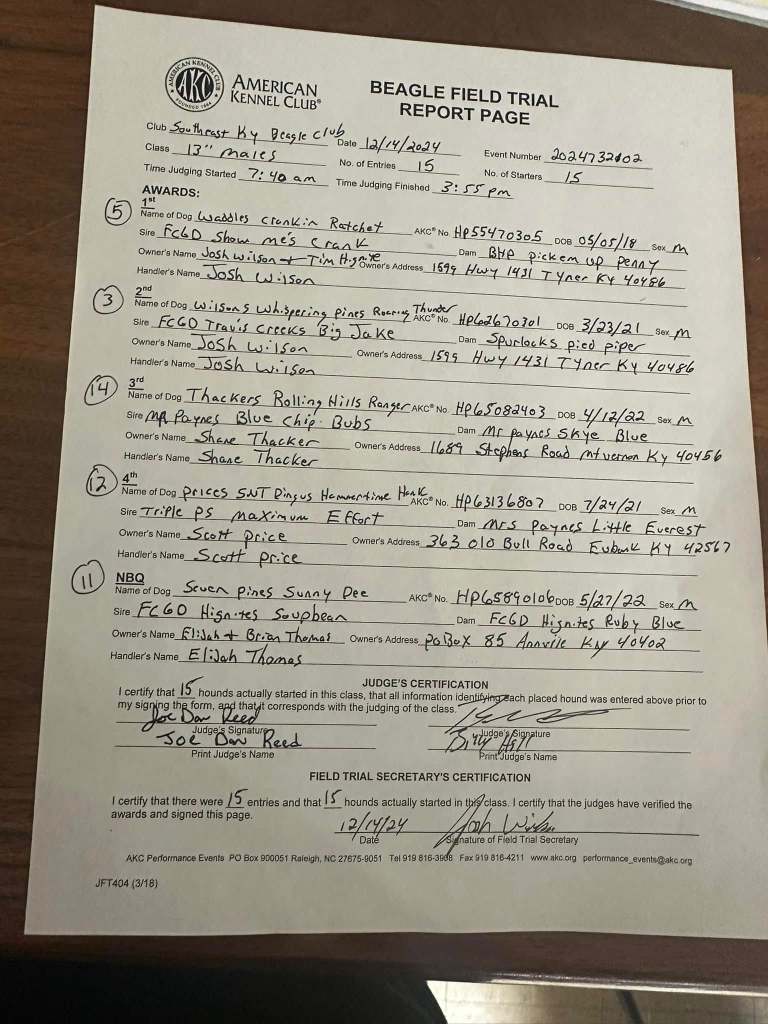 AMERICAN KENNEL CLUB
AKC
FOUNDED 1884
AMERICAN
KENNEL CLUB®
BEAGLE FIELD TRIAL
REPORT PAGE
Club Southeast Ky Beagle Club Date 12/14/2024 Event Number 2024732102
Class 13" males No. of Entries 15 No. of Starters 15
Time Judging Started 7:40 am Time Judging Finished 3:55 pm
AWARDS:
5 1st
Name of Dog Waddles Crankin Ratchet AKC® No. HP55470305 DOB 05/05/18 Sex M
Sire FCGD Show me's Crank Dam BHP pickem up penny
Owner's Name Josh Wilson + Tim Hignite Owner's Address 1599 Hwy 1431 Tyner Ky 40486
Handler's Name Josh Wilson
3 2nd
Name of Dog Wilsons Whispering Pines Roaring Thunder AKC® No. HP62670301 DOB 3/23/21 Sex M
Sire FCGD Travis Creeks Big Jake Dam Spurlocks pied piper
Owner's Name Josh Wilson Owner's Address 1599 Hwy 1431 Tyner Ky 40486
Handler's Name Josh Wilson
14 3rd
Name of Dog Thackers Rolling Hills Ranger AKC® No. HP65082403 DOB 4/12/22 Sex M
Sire MR Paynes Blue Chip Bubs Dam Mr paynes Skye Blue
Owner's Name Shane Thacker Owner's Address 1689 Stephens Road Mt vernon Ky 40456
Handler's Name Shane Thacker
12 4th
Name of Dog Prices SNT Dingus Hammertime Hank AKC® No. HP63136807 DOB 7/24/21 Sex M
Sire Triple PS Maximum Effort Dam Mrs Paynes Little Everest
Owner's Name Scott Price Owner's Address 363 Old Bull Road Eubank KY 42567
Handler's Name Scott Price
11 NBQ
Name of Dog Seven pines Sunny Dee AKC® No. HP65890106 DOB 5/27/22 Sex M
Sire FCGD Hignites Soupbean Dam FCGD Hignites Ruby Blue
Owner's Name Elijah + Brian Thomas Owner's Address PO Box 85 Annvile Ky 40402
Handler's Name Elijah Thomas
JUDGE'S CERTIFICATION
I certify that 15 hounds actually started in this class, that all information identifying each placed hound was entered above prior to
my signing the form, and that it corresponds with the judging of the class.
Joe Dan Reed
Judge's Signature Judge's Signature
Joe Dan Reed Billy
Print Judge's Name Print Judge's Name
FIELD TRIAL SECRETARY'S CERTIFICATION
I certify that there were 15 entries and that 15 hounds actually started in this class. I certify that the judges have verified the
awards and signed this page.
12/14/24 Josh Wilson
Date Signature of Field Trial Secretary
AKC Performance Events PO Box 900051 Raleigh, NC 27675-9051 Tel 919 816-3908 Fax 919 816-4211 www.akc.org performance_events@akc.org
JFT404 (3/18)